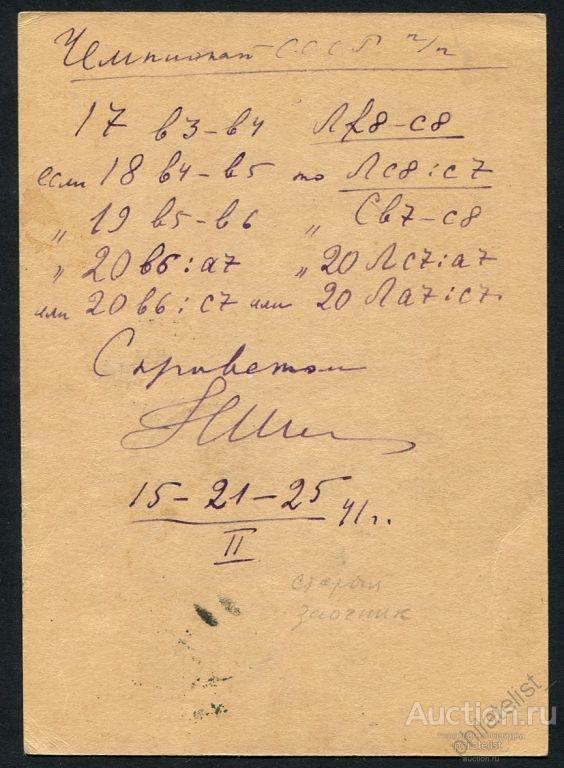 Чемпионат СССР п/п
17 в3-в4 Лf8-с8
если 18 в4-в5 то Лс8:с7
„ 19 в5-в6 „ Св7-с8
„ 20 в6:а7 „ 20 Лс7:а7
или 20 в6:с7 или 20 Ла7:с7.
С приветом
15-21-25 41 г.
II
старый
заочник
philatelist
Auction.ru
philatelist
auction.ru